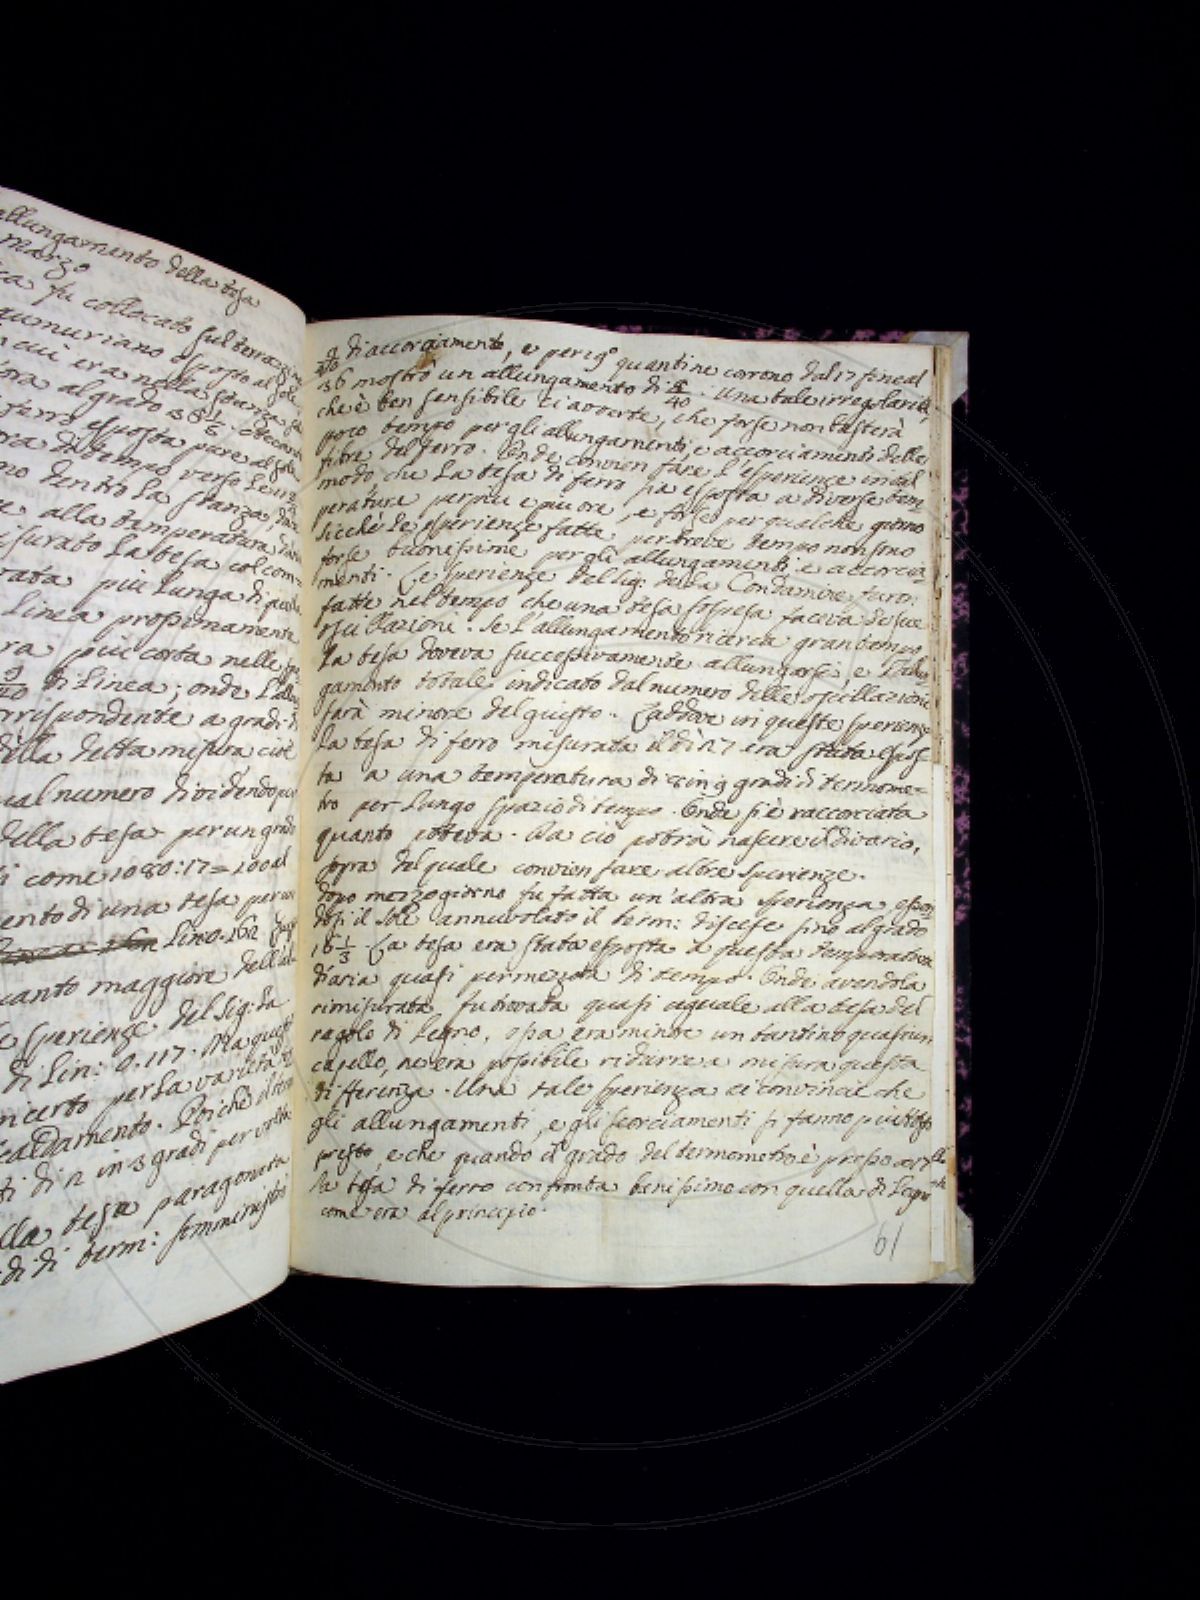 allungamento della tesa
Marzo
ca fu collocato sul terrazzino
aumuriano esposto al sole
in cui era nella stanza
ora al grado 36 1/5
ferro esposta pare al sole
di tempo verso le
dentro la stanza
alla temperatura
misurato la tesa col
rata più lunga di
Linea prossimamente
ra più corta nelle
9/40 di Linea; onde
rrispondente a gradi di
della detta misura cioè
ual numero dividendo
della tesa per un grado
come 1080:17=100 al
ento di una tesa per un
Lin 0.162
uanto maggiore dell'al
sperienze del Sig: La
di Lin: 0.117. Ma questo
incerto per la varietà
caldamento. Poiché il
ti di 2 in 3 gradi per volta
lla tesa paragonata
di di term: somministri
9/40 di accorciamento, e per 19° quanti ne corrono dal 17 fine al
36 mostrò un allungamento di /40. Una tale irregolarità,
che è ben sensibile ci avverte, che forse non basterà
poco tempo per gli allungamenti, e accorciamenti delle
fibre del ferro. Onde convien fare l'esperienze in tal
modo che la tesa di ferro sia esposta a diverse tem
perature per più e più ore, e forse per qualche giorno
sicché le esperienze fatte per breve tempo non sono
forse buonissime per gli allungamenti e accorcia
menti. Le sperienze del Sig: de La Condamine furon
fatte nel tempo che una tesa sospesa faceva le sue
oscillazioni. Se l'allungamento ricerca gran tempo
la tesa doveva successivamente allungarsi, e l'allun
gamento totale indicato dal numero delle oscillazioni
sarà minore del giusto. Laddove in queste sperienze
la tesa di ferro misurata il dì 17 era stata espos
ta a una temperatura di 8 in 9 gradi di termome=
tro per lungo spazio di tempo. Onde si è raccorciata
quanto poteva. Da ciò potrà nascere il divario,
sopra del quale convien fare altre sperienze.
Dopo mezzogiorno fu fatta un'altra sperienza essen
dosi il Sole annuvolato il term: discese sino al grado
16 1/3. La tesa era stata esposta a questa temperatura
d'aria quasi per mezz'ora di tempo. Onde avendola
rimisurata fu trovata quasi eguale alla tesa del
regolo di Legno, ossia era minore un tantino quasi un
capello, ne era possibile ridurre a misura questa
differenza. Una tale sperienza ci convince che
gli allungamenti, e gli scorciamenti si fanno piuttosto
presto, e che quando il grado del termometro è presso a 17
la tesa di ferro confronta benissimo con quella di Legno
come era al principio.
61